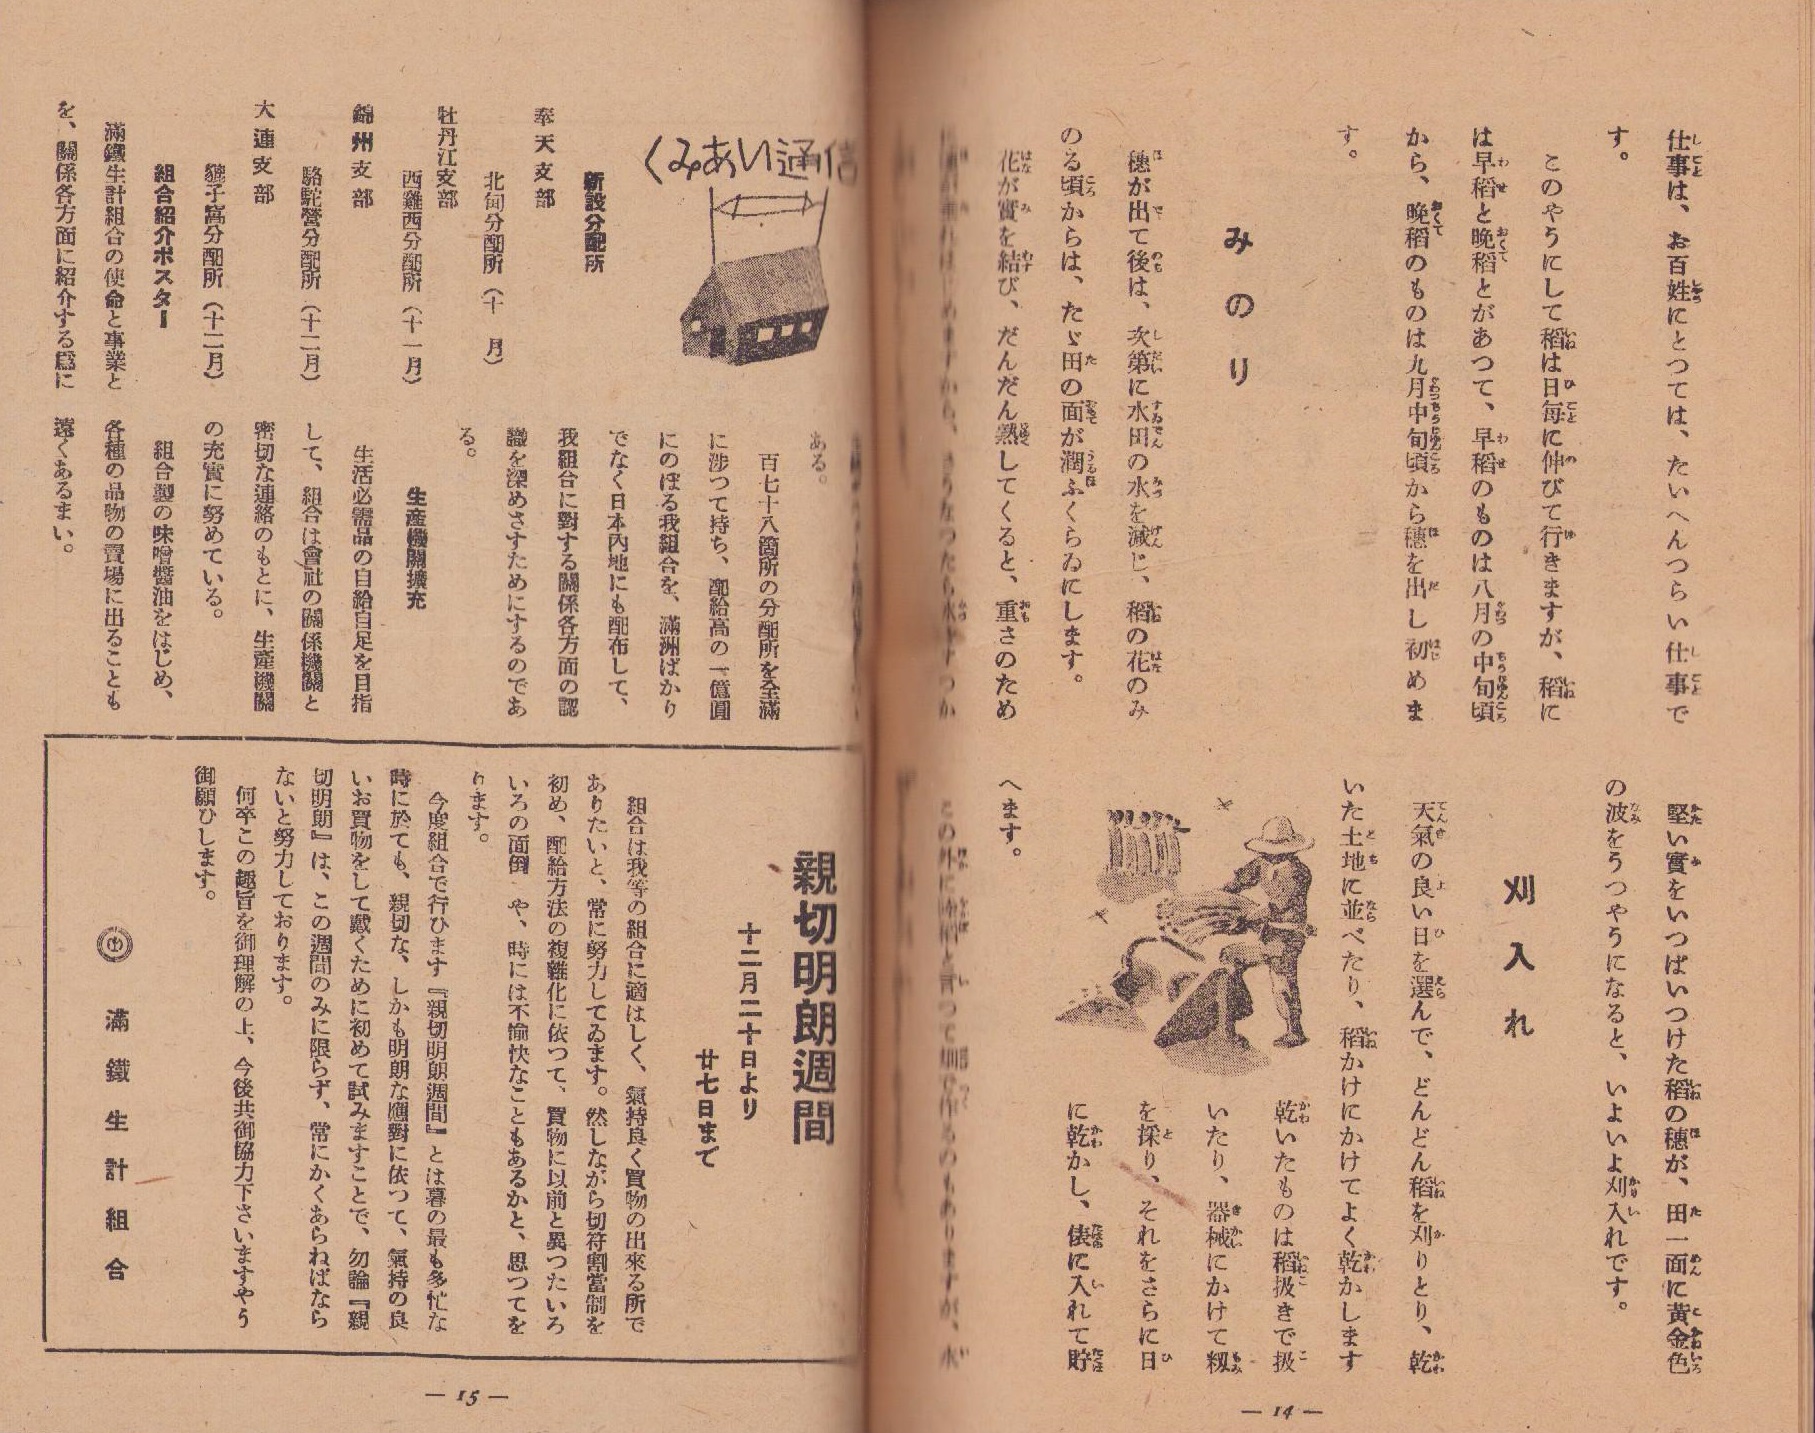 仕事は、お百姓にとつては、たいへんつらい仕事で
す。
このやうにして稻は日每に伸びて行きますが、稻に
は早稻と晩稻とがあつて、早稻のものは八月の中旬頃
から、晩稻のものは九月中旬頃から穗を出し初めま
す。
みのり
穗が出て後は、次第に水田の水を減じ、稻の花のみ
のる頃からは、たゞ田の面が潤ふくらゐにします。
花が實を結び、だんだん熟してくると、重さのため
堅い實をいつぱいつけた稻の穗が、田一面に黃金色
の波をうつやうになると、いよいよ刈入れです。
刈入れ
天氣の良い日を選んで、どんどん稻を刈りとり、乾
いた土地に並べたり、稻かけにかけてよく乾かします
乾いたものは稻扱きで扱
いたり、器械にかけて籾
を採り、それをさらに日
に乾かし、俵に入れて貯
へます。
この外に陸稻と言つて畑で作るのもありますが、水
— 14 —
くみあい通信
新設分配所
奉天支部
北甸分配所（十 月）
牡丹江支部
西雞西分配所（十一月）
錦州支部
駱駝營分配所（十二月）
大連支部
貔子窩分配所（十二月）
組合紹介ポスター
滿鐵生計組合の使命と事業と
を、關係各方面に紹介する爲に
ある。
百七十八箇所の分配所を全滿
に涉つて持ち、配給高の一億圓
にのぼる我組合を、滿洲ばかり
でなく日本內地にも配布して、
我組合に對する關係各方面の認
識を深めさすためにするのであ
る。
生產機關擴充
生活必需品の自給自足を目指
して、組合は會社の關係機關と
密切な連絡のもとに、生產機關
の充實に努めている。
組合製の味噌醬油をはじめ、
各種の品物の賣場に出ることも
遠くあるまい。
親切明朗週間
十二月二十日より
廿七日まで
組合は我等の組合に適はしく、氣持良く買物の出來る所で
ありたいと、常に努力してゐます。然しながら切符割當制を
初め、配給方法の複雜化に依つて、買物に以前と異つたいろ
いろの面倒 や、時には不愉快なこともあるかと、思つてを
ります。
今度組合で行ひます『親切明朗週間』とは暮の最も多忙な
時に於ても、親切な、しかも明朗な應對に依つて、氣持の良
いお買物をして戴くために初めて試みますことで、勿論『親
切明朗』は、この週間のみに限らず、常にかくあらねばなら
ないと努力しております。
何卒この趣旨を御理解の上、今後共御協力下さいますやう
御願ひします。
滿鐵生計組合
— 15 —